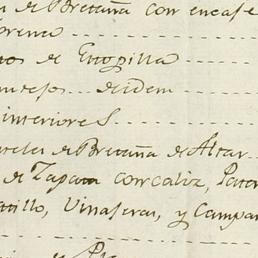 de Bretaña con encaje
prenca
os de Estopilla
de idem
interiores
de Bretaña de Altar
de Zapata con caliz, Paten
tillo, Vinageras, y Campan